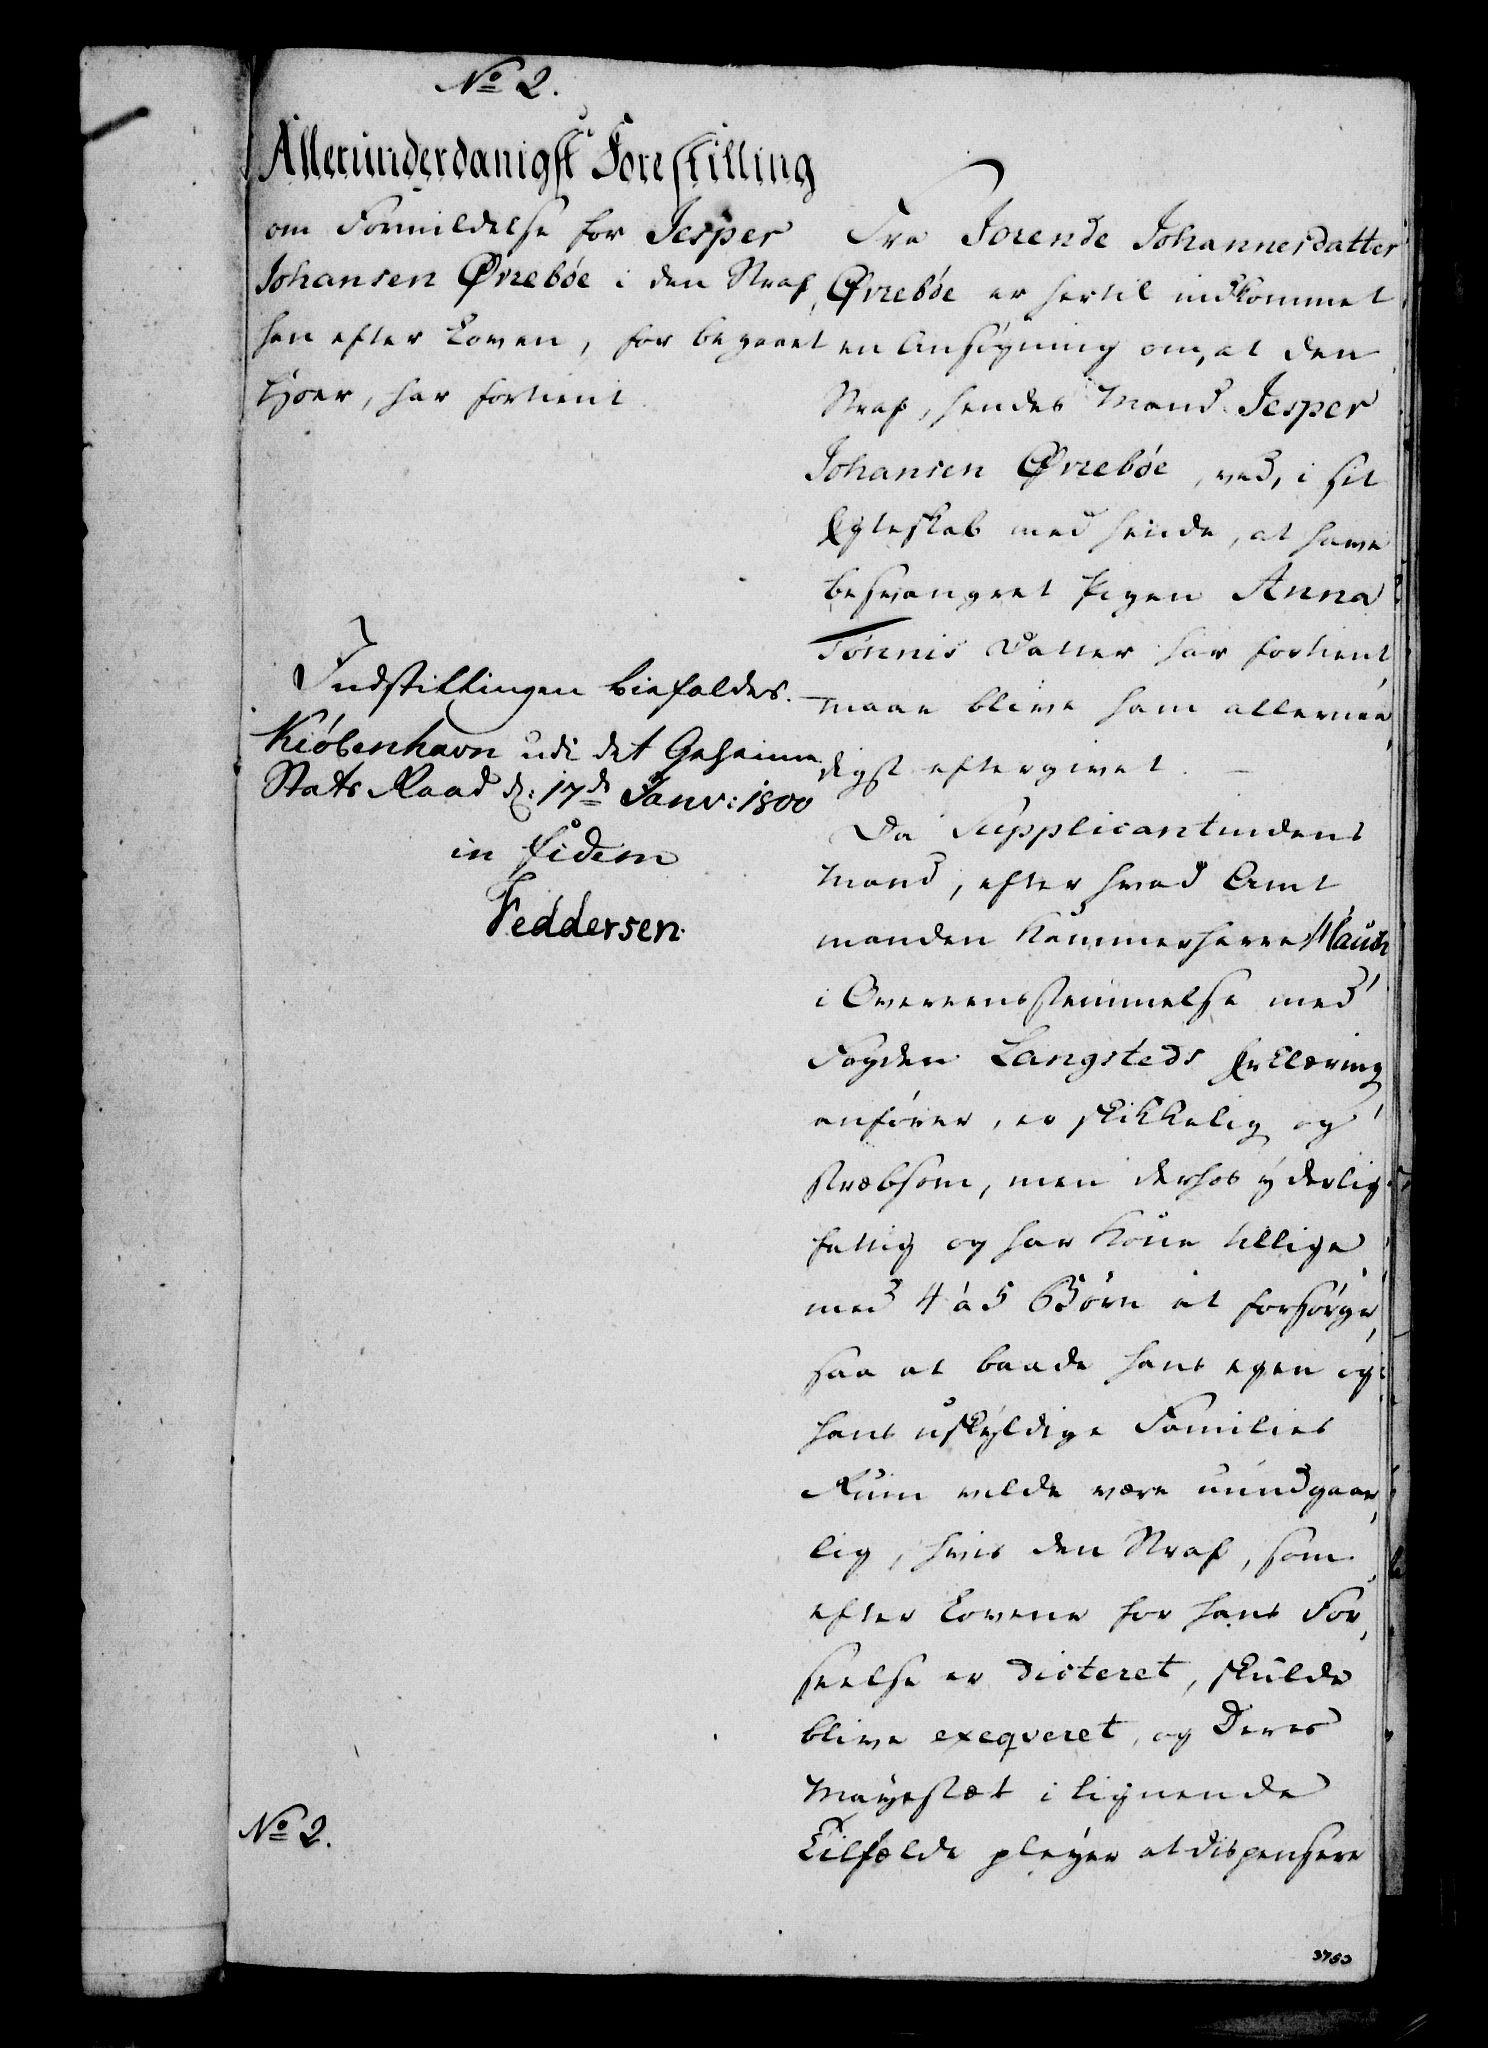 No 2.
Allerunderdanigst Forestilling
om Formildelse for Jesper
Johansen Ørrebøe i den Straf,
han efter Loven, for begaaet
Hoer, har fortient
Indstillingen biefaldes.
Kiöbenhavn udi det Geheime
Stats Raad d: 17de Janv: 1800
in fidem
Feddersen.
No 2.
Fra Jorende Johannesdatter
Ørrebøe er hertil indkommet
en Ansøgning om, at den
Straf, hendes Mand Jesper
Johansen Ørrebøe, ved, i sit
Egteskab med hende, at have
besvangret Pigen Anna
Tönnis Datter har fortient,
maae blive ham allernaa,
digst eftergivet. –
Da Supplicantindens
Mand, efter hvad Amt
manden Kammerherre Hauch
i Overeensstemmelse med
Fogden Langsteds Erklæring
anfører, er skikkelig og
stræbsom, men derhos yderlig
fattig og har Kone tillige
med 4 á 5 Børn at forsørge,
saa at baade hans egen og
hans uskyldige Families
Ruin vilde være uundgaae,
lig, hvis den Straf, som
efter Lovene for hans For,
seelse er dicteret, skulde
blive exeqveret, og Deres
Mayestæt i lignende
Tilfælde pleyer at dispensere
3753